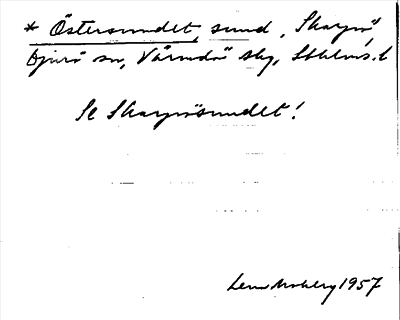 * Östersundet, sund, Skarpö,
Djurö sn, Värmdö skg, Sthlms. l
Se Skarpösundet!
Lena Moberg 1957